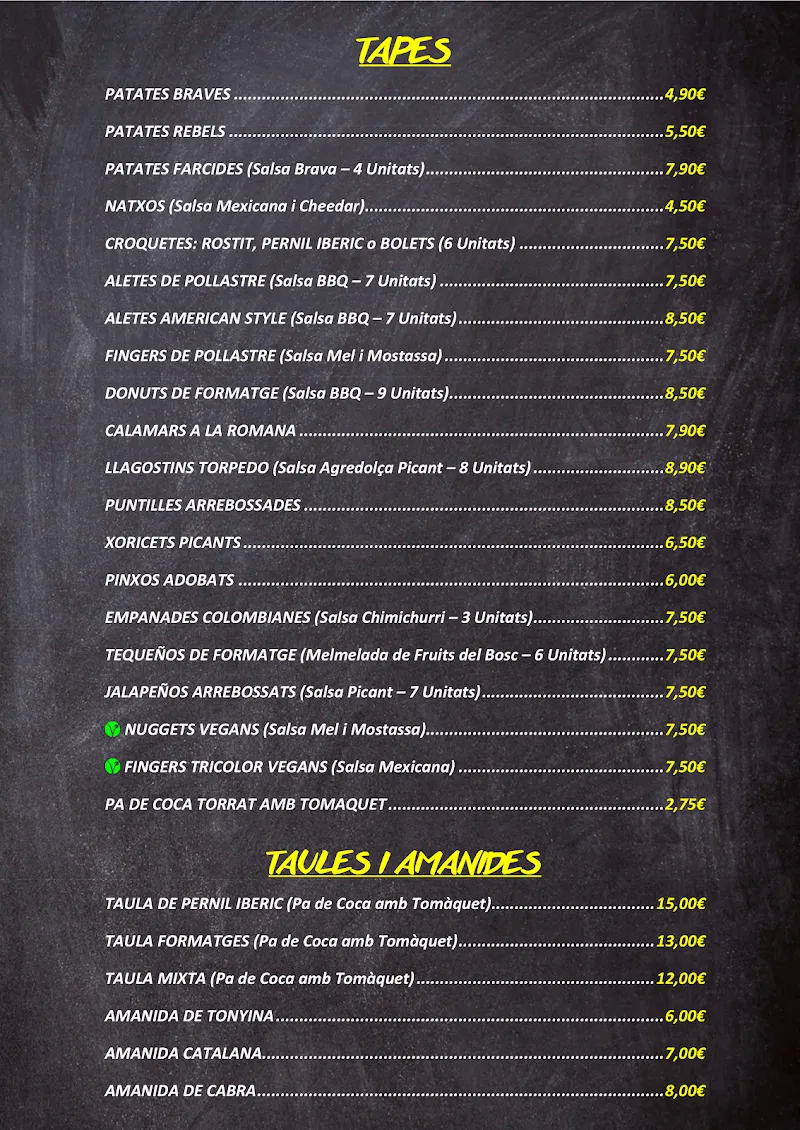 TAPES
PATATES BRAVES ........ 4,90€
PATATES REBELS ........ 5,50€
PATATES FARCIDES (Salsa Brava – 4 Unitats) ........ 7,90€
NATXOS (Salsa Mexicana i Cheedar) ........ 4,50€
CROQUETES: ROSTIT, PERNIL IBERIC o BOLETS (6 Unitats) ........ 7,50€
ALETES DE POLLASTRE (Salsa BBQ – 7 Unitats) ........ 7,50€
ALETES AMERICAN STYLE (Salsa BBQ – 7 Unitats) ........ 8,50€
FINGERS DE POLLASTRE (Salsa Mel i Mostassa) ........ 7,50€
DONUTS DE FORMATGE (Salsa BBQ – 9 Unitats) ........ 8,50€
CALAMARS A LA ROMANA ........ 7,90€
LLAGOSTINS TORPEDO (Salsa Agredolça Picant – 8 Unitats) ........ 8,90€
PUNTILLES ARREBOSSADES ........ 8,50€
XORICETS PICANTS ........ 6,50€
PINXOS ADOBATS ........ 6,00€
EMPANADES COLOMBIANES (Salsa Chimichurri – 3 Unitats) ........ 7,50€
TEQUEÑOS DE FORMATGE (Melmelada de Fruits del Bosc – 6 Unitats) ........ 7,50€
JALAPEÑOS ARREBOSSATS (Salsa Picant – 7 Unitats) ........ 7,50€
NUGGETS VEGANS (Salsa Mel i Mostassa) ........ 7,50€
FINGERS TRICOLOR VEGANS (Salsa Mexicana) ........ 7,50€
PA DE COCA TORRAT AMB TOMAQUET ........ 2,75€
TAULES I AMANIDES
TAULA DE PERNIL IBERIC (Pa de Coca amb Tomàquet) ........ 15,00€
TAULA FORMATGES (Pa de Coca amb Tomàquet) ........ 13,00€
TAULA MIXTA (Pa de Coca amb Tomàquet) ........ 12,00€
AMANIDA DE TONYINA ........ 6,00€
AMANIDA CATALANA ........ 7,00€
AMANIDA DE CABRA ........ 8,00€